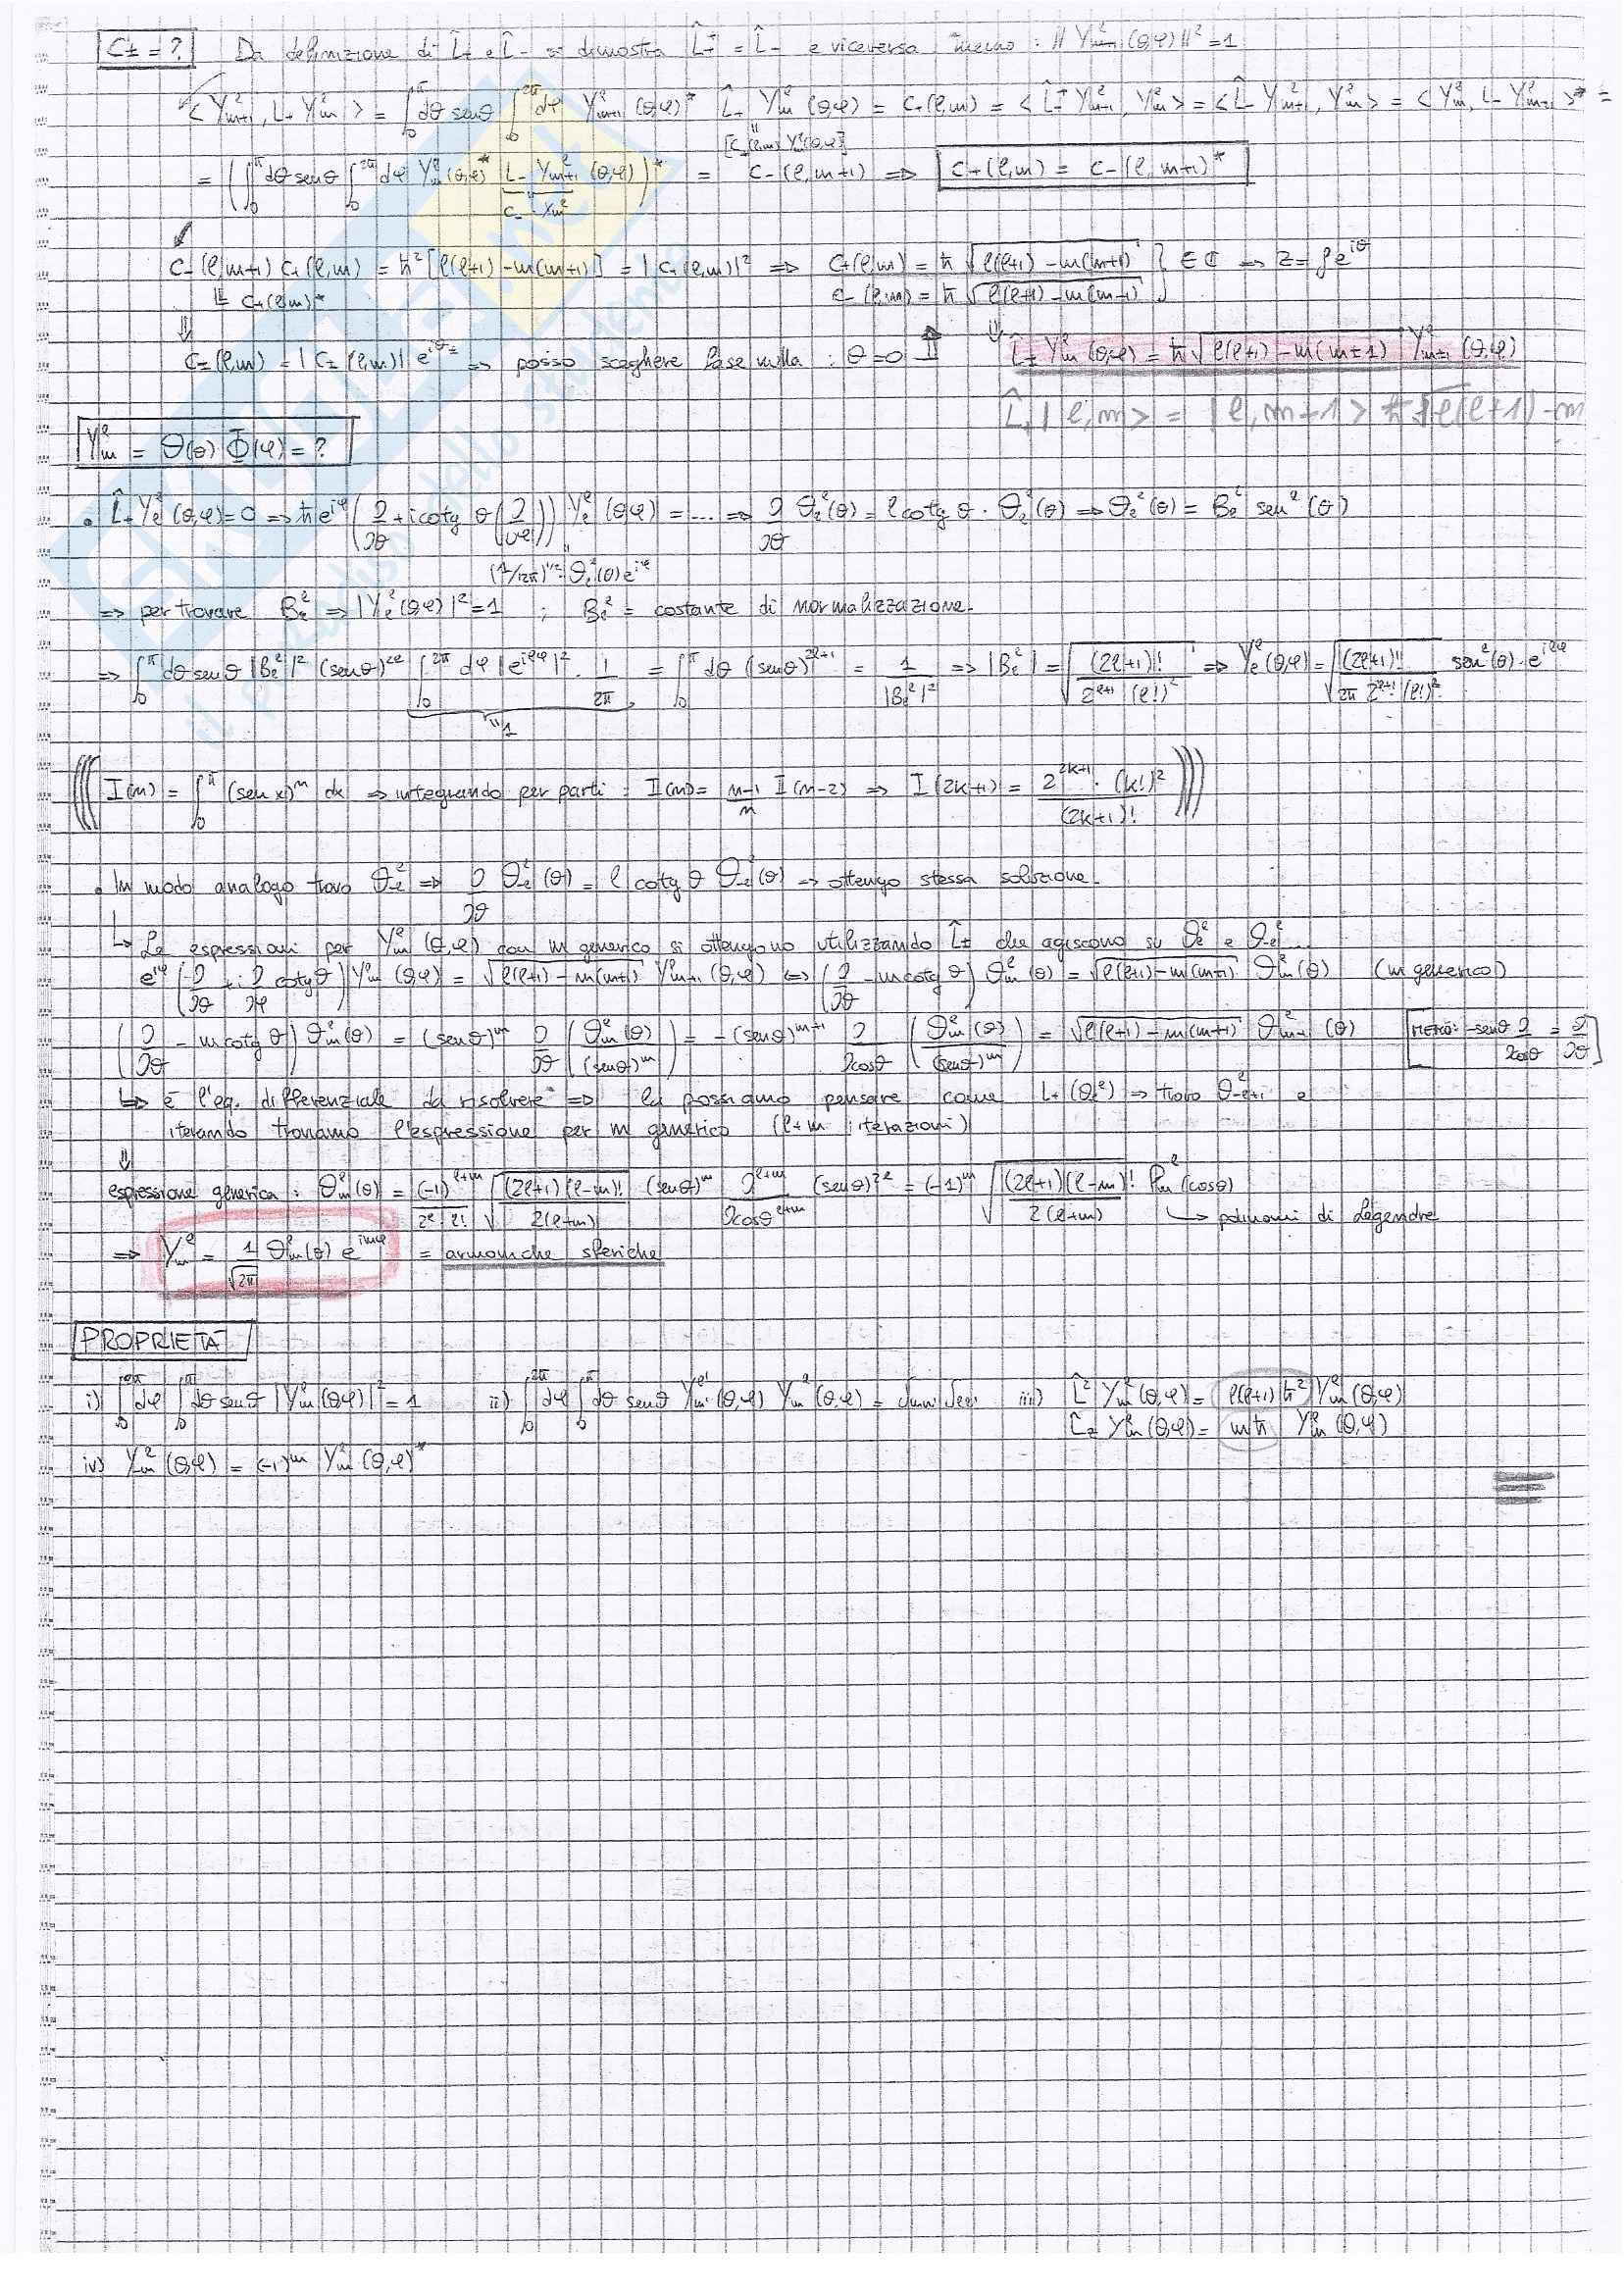 C± = ? Da definizione di L̂+ e L̂- si dimostra L̂+† = L̂- e viceversa : || Y^ℓ_{m+1} (θ,φ) ||² = 1
< Y^ℓ_{m+1}, L+ Y^ℓ_m > = ∫_0^π dθ senθ ∫_0^{2π} dφ Y^ℓ_{m+1} (θ,φ)* L̂+ Y^ℓ_m (θ,φ) = C+(ℓ,m) = < L̂+† Y^ℓ_{m+1}, Y^ℓ_m > = < L̂- Y^ℓ_{m+1}, Y^ℓ_m > = < Y^ℓ_m, L- Y^ℓ_{m+1} >* =
= ( ∫_0^π dθ senθ ∫_0^{2π} dφ Y^ℓ_m (θ,φ)* L- Y^ℓ_{m+1} (θ,φ) )* = C-(ℓ,m+1) ⇒ C+(ℓ,m) = C-(ℓ,m+1)*
C- Y^ℓ_m
C-(ℓ,m+1) C+(ℓ,m) = ħ² [ℓ(ℓ+1) - m(m+1)] = |C+(ℓ,m)|² ⇒ C+(ℓ,m) = ħ √(ℓ(ℓ+1) - m(m+1)) } ∈ ℂ → z = ρ e^{iθ}
C+(ℓ,m)* C-(ℓ,m) = ħ √(ℓ(ℓ+1) - m(m-1))
C±(ℓ,m) = |C±(ℓ,m)| e^{iθ±} ⇒ posso scegliere fase nulla : θ=0
L̂± Y^ℓ_m (θ,φ) = ħ √(ℓ(ℓ+1) - m(m±1)) Y^ℓ_{m±1} (θ,φ)
Y^ℓ_m = Θ(θ) Φ(φ) = ?
• L̂+ Y^ℓ_ℓ (θ,φ) = 0 ⇒ ħ e^{iφ} ( ∂/∂θ + i cotg θ (∂/∂φ) ) Y^ℓ_ℓ (θ,φ) = .... ⇒ ∂/∂θ Θ^ℓ_ℓ (θ) = ℓ cotg θ · Θ^ℓ_ℓ (θ) ⇒ Θ^ℓ_ℓ (θ) = B^ℓ_ℓ sen^ℓ (θ)
⇒ per trovare B^ℓ_ℓ ⇒ |Y^ℓ_ℓ (θ,φ)|² = 1 ; B^ℓ_ℓ = costante di normalizzazione.
⇒ ∫_0^π dθ senθ |B^ℓ_ℓ|² (senθ)^{2ℓ} ∫_0^{2π} dφ |e^{iℓφ}|² · 1/2π = ∫_0^π dθ (senθ)^{2ℓ+1} = 1/|B^ℓ_ℓ|² ⇒ |B^ℓ_ℓ| = √((2ℓ+1)! / 2^{2ℓ+1} (ℓ!)²) ⇒ Y^ℓ_ℓ (θ,φ) = √((2ℓ+1)! / 2π 2^{2ℓ+1} (ℓ!)²) sen^ℓ (θ) · e^{iℓφ}
"1
((( I(n) = ∫_0^π (sen x)^n dx ⇒ integrando per parti : I(n) = (n-1)/n I(n-2) ⇒ I(2k+1) = 2^{2k+1} · (k!)² / (2k+1)! )))
• In modo analogo trovo Θ^ℓ_{-ℓ} ⇒ ∂/∂θ Θ^ℓ_{-ℓ} (θ) = ℓ cotg θ Θ^ℓ_{-ℓ} (θ) → ottengo stessa soluzione.
↳ Le espressioni per Y^ℓ_m (θ,φ) con m generico si ottengono utilizzando L̂± che agiscono su Θ^ℓ_ℓ e Θ^ℓ_{-ℓ}
e^{iφ} ( ∂/∂θ + i ∂/∂φ cotgθ ) Y^ℓ_m (θ,φ) = √(ℓ(ℓ+1) - m(m+1)) Y^ℓ_{m+1} (θ,φ) ⇔ ( ∂/∂θ - m cotg θ ) Θ^ℓ_m (θ) = √(ℓ(ℓ+1) - m(m+1)) Θ^ℓ_m (θ) (m generico)
( ∂/∂θ - m cotg θ ) Θ^ℓ_m (θ) = (senθ)^m ∂/∂θ ( Θ^ℓ_m (θ) / (senθ)^m ) = - (senθ)^{m+1} ∂/∂cosθ ( Θ^ℓ_m (θ) / (senθ)^m ) = √(ℓ(ℓ+1) - m(m+1)) Θ^ℓ_{m+1} (θ) [ -senθ ∂/∂cosθ = ∂/∂θ ]
↳ è l'eq. differenziale da risolvere ⇒ la possiamo pensare come L+(Θ^ℓ_{-ℓ}) → trovo Θ^ℓ_{-ℓ+1} e
iterando troviamo l'espressione per m generico (ℓ+m iterazioni)
⇓
espressione generica : Θ^ℓ_m (θ) = (-1)^{ℓ+m} / 2^ℓ ℓ! √((2ℓ+1)(ℓ-m)! / 2(ℓ+m)) (senθ)^m ∂^{ℓ+m}/∂cosθ^{ℓ+m} (senθ)^{2ℓ} = (-1)^m √((2ℓ+1)(ℓ-m)! / 2(ℓ+m)) P^ℓ_m (cosθ)
↳ polinomi di Legendre
⇒ Y^ℓ_m = 1/√2π Θ^ℓ_m (θ) e^{imφ} = armoniche sferiche
PROPRIETÀ
i) ∫_0^{2π} dφ ∫_0^π dθ senθ |Y^ℓ_m (θ,φ)|² = 1 ii) ∫_0^{2π} dφ ∫_0^π dθ senθ Y^{ℓ'}_{m'} (θ,φ) Y^ℓ_m (θ,φ) = δmm' δℓℓ' iii) L̂² Y^ℓ_m (θ,φ) = ℓ(ℓ+1) ħ² Y^ℓ_m (θ,φ)
L̂z Y^ℓ_m (θ,φ) = mħ Y^ℓ_m (θ,φ)
iv) Y^ℓ_m (θ,φ) = (-1)^m Y^ℓ_m (θ,φ)*